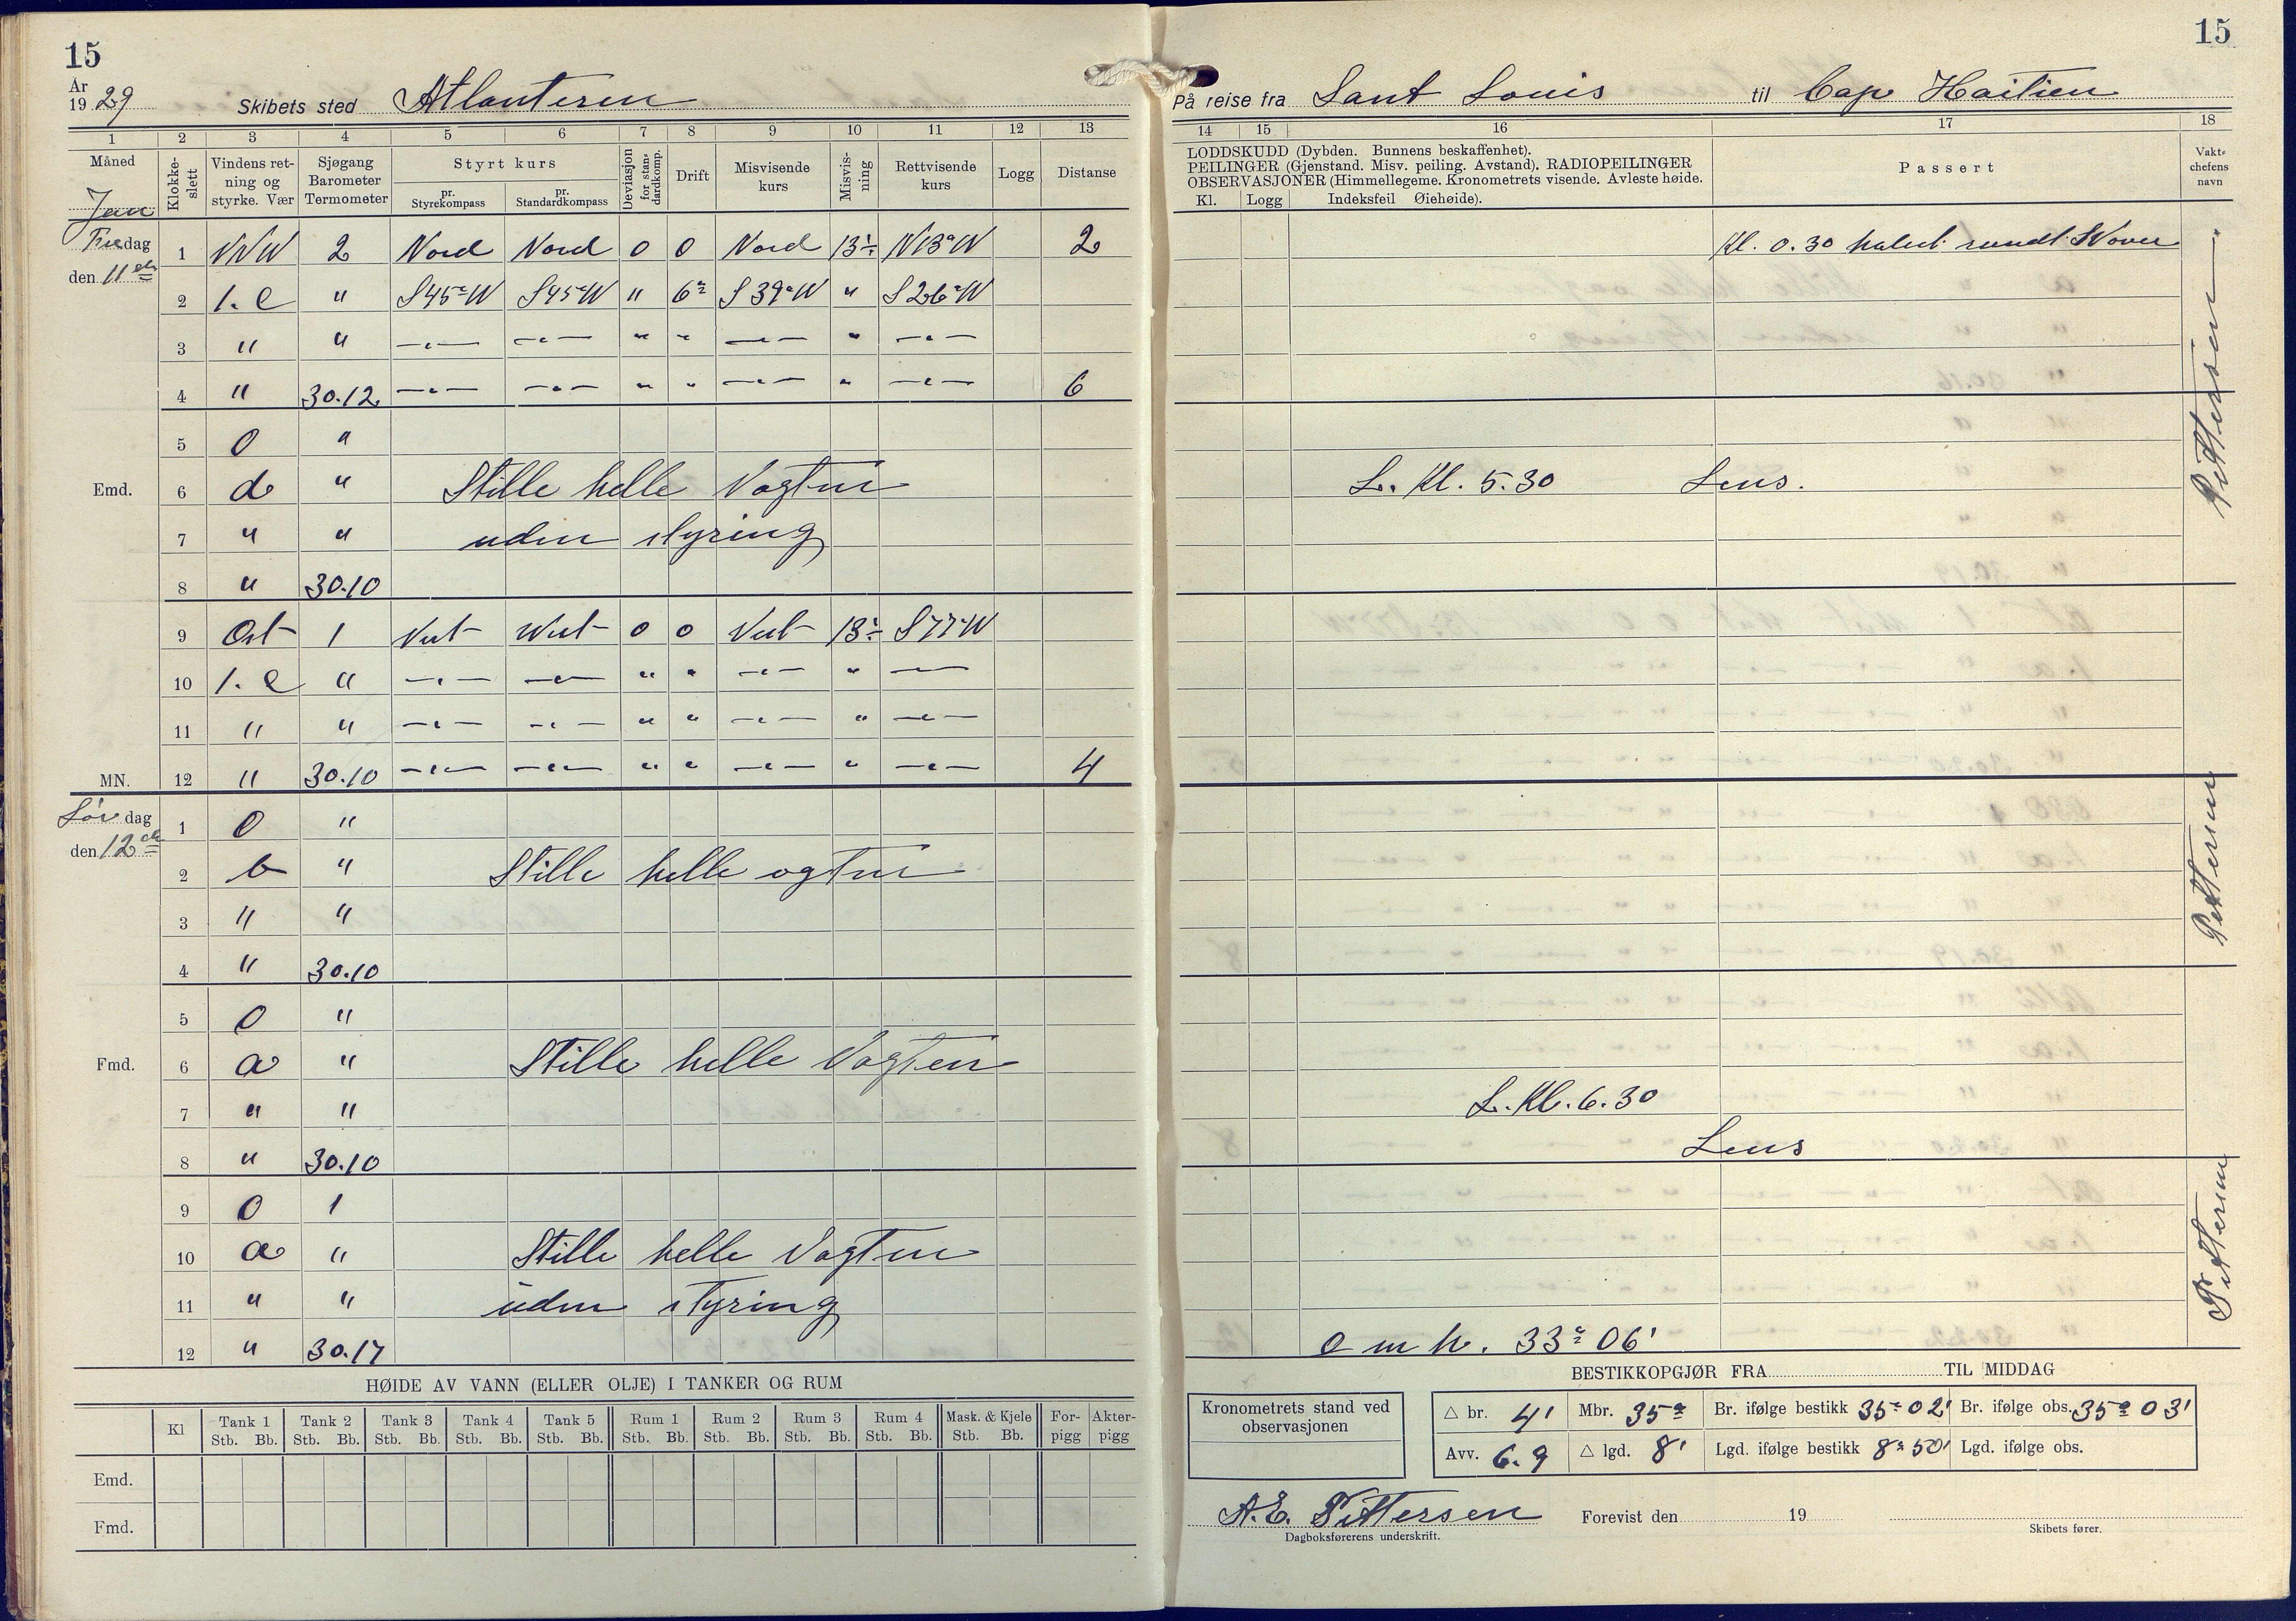 15
År
1929 Skibets sted Atlanteren
1 2 3 4 5 6 7 8 9 10 11 12 13
Måned Klokke-slett Vindens ret-ning og styrke. Vær Sjøgang Barometer Termometer Styrt kurs Deviasjon for stan-dardkomp. Drift Misvisende kurs Misvis-ning Rettvisende kurs Logg Distanse
pr. Styrekompass pr. Standardkompass
Jan
Fredag 1 VNW 2 Nord Nord 0 0 Nord 13°÷ N13°W 2
den 11te 2 1. c " S45°W S45°W " 6° S39°W " S26°W
3 " " —"— —"— " " —"— " —"—
4 " 30.12 —"— —"— " " —"— " —"— 6
5 0 "
Emd. 6 d " Stille helle Vagten
7 " " uden styring
8 " 30.10
9 Ost 1 Vest West 0 0 Vest 13°÷ S77°W
10 1. c " —"— —"— " " —"— " —"—
11 " " —"— —"— " " —"— " —"—
MN. 12 " 30.10 —"— —"— " " —"— " —"— 4
Lørdag 1 0 "
den 12te 2 b " Stille helle ogten
3 " "
4 " 30.10
5 0 "
Fmd. 6 a " Stille helle Vagten
7 " "
8 " 30.10
9 0 1
10 a " Stille helle Vagten
11 " " uden styring
12 " 30.17
HØIDE AV VANN (ELLER OLJE) I TANKER OG RUM
Kl Tank 1 Tank 2 Tank 3 Tank 4 Tank 5 Rum 1 Rum 2 Rum 3 Rum 4 Mask. & Kjele For-pigg Akter-pigg
Stb. Bb. Stb. Bb. Stb. Bb. Stb. Bb. Stb. Bb. Stb. Bb. Stb. Bb. Stb. Bb. Stb. Bb. Stb. Bb.
Emd.
Fmd.
15
På reise fra Sant Louis til Cap Haitien
14 15 16 17 18
LODDSKUDD (Dybden. Bunnens beskaffenhet).
PEILINGER (Gjenstand. Misv. peiling. Avstand). RADIOPEILINGER
OBSERVASJONER (Himmellegeme. Kronometrets visende. Avleste høide.
Kl. Logg Indeksfeil Øiehøide).
Passert
Vakt-chefens navn
Kl. 0.30 halvt rundt
Pettersen
L. Kl. 5.30 Lens.
Pettersen
L. Kl. 6.30
Lens
Pettersen
o m h. 33° 06'
BESTIKKOPGJØR FRA TIL MIDDAG
Kronometrets stand ved observasjonen
△ br. 4' Mbr. 35° Br. ifølge bestikk 35° 02' Br. ifølge obs. 35° 03'
Avv. 6.9 △ lgd. 8' Lgd. ifølge bestikk 8° 50' Lgd. ifølge obs.
A.E. Pettersen Forevist den 19
Dagboksførerens underskrift. Skibets fører.